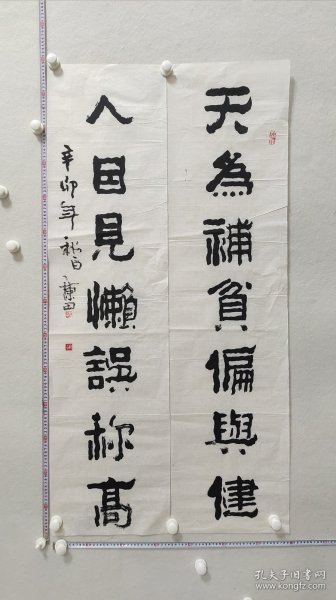 天為補貧偏與健
人因見懶誤称高
辛卯年
孔夫子旧书网
www.kongfz.com